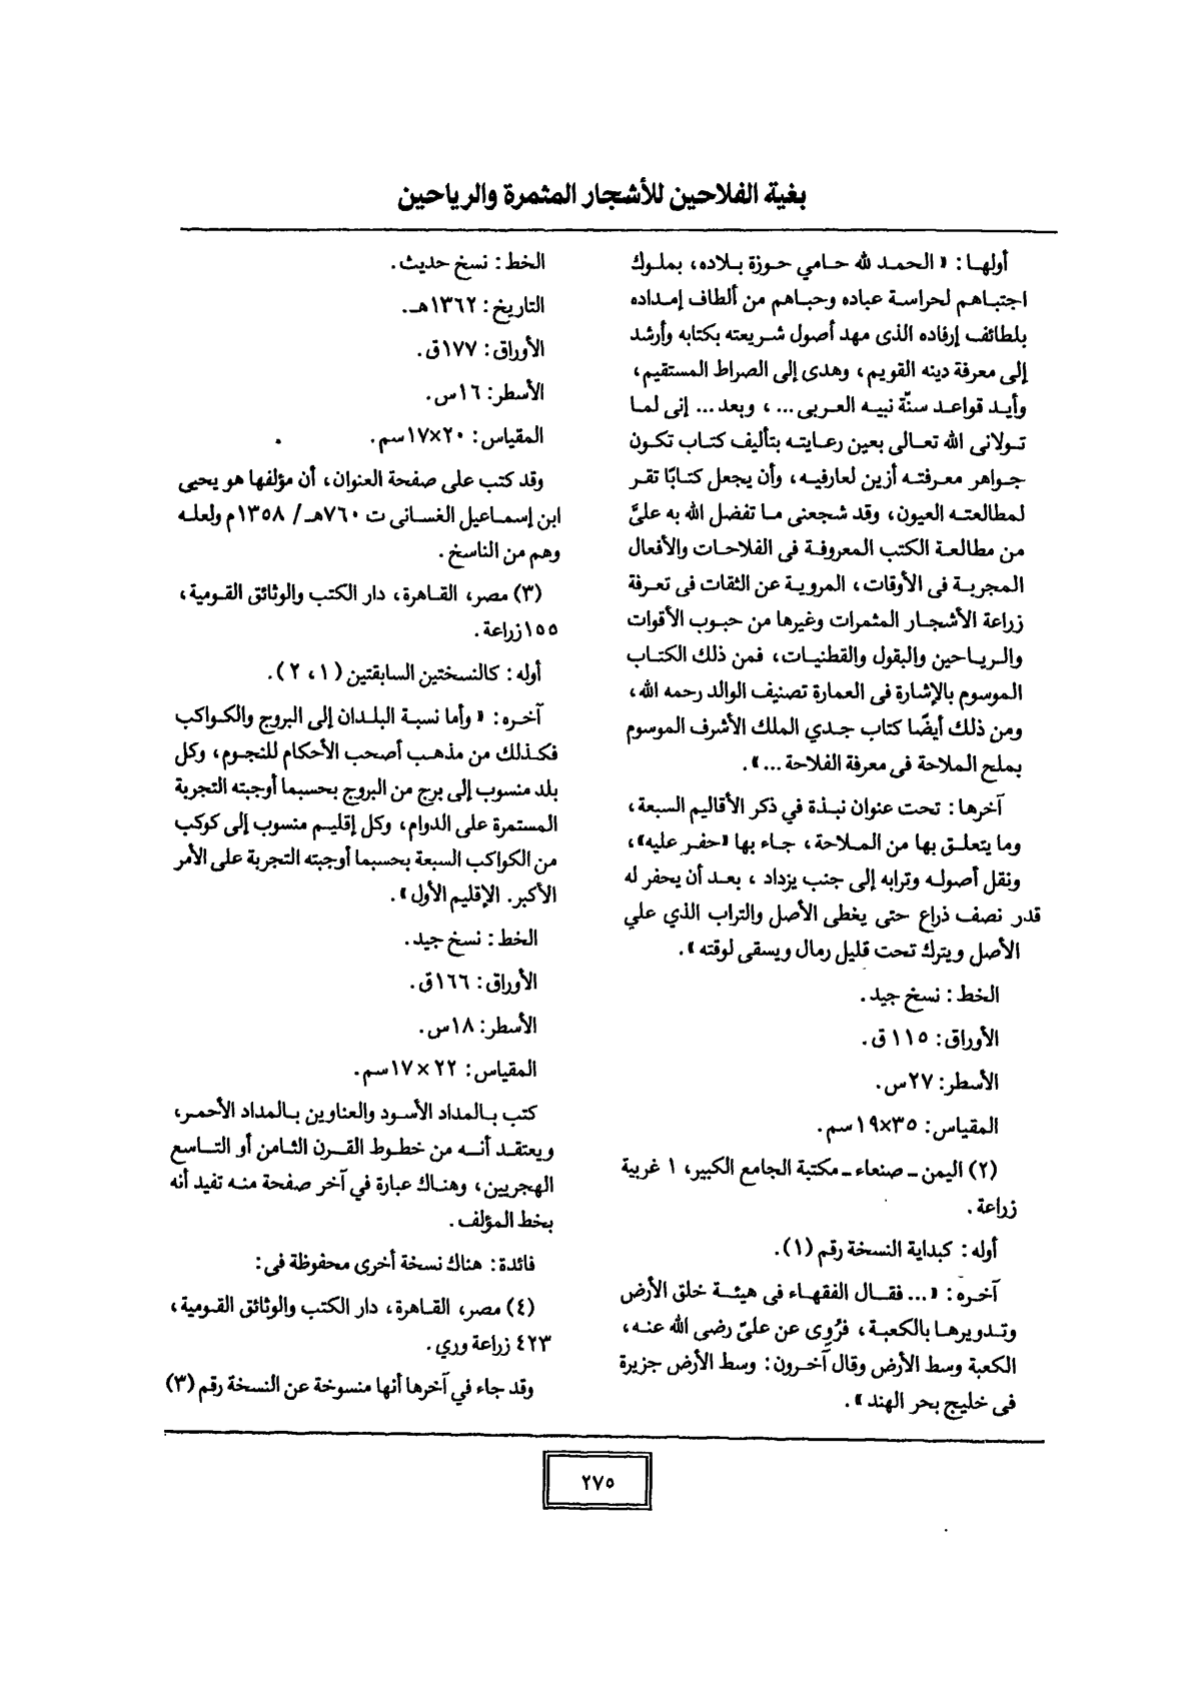 بغية الفلاحين للأشجار المثمرة والرياحين
أولهـا: « الحمـد لله حـامي حـوزة بـلاده، بملـوك
اجتبـاهم لحراسـة عباده وحبـاهم من ألطاف إمـداده
بلطائف إرفاده الذى مهد أصول شـريعته بكتابه وأرشد
إلى معرفة دينه القويم، وهدى إلى الصراط المستقيم،
وأيـد قواعـد سنّة نبيـه العـربى...، وبعد... إنى لمـا
تـولانى الله تعـالى بعين رعـايتـه بتأليف كتـاب تكـون
جـواهر معـرفتـه أزين لعارفيـه، وأن يجعل كتـابًا تقـر
لمطالعتـه العيون، وقد شجعنى مـا تفضل الله به علىّ
من مطالعـة الكتب المعروفـة فى الفلاحـات والأفعال
المجربـة فى الأوقات، المرويـة عن الثقات فى تعـرفة
زراعة الأشجـار المثمرات وغيرها من حبـوب الأقوات
والـريـاحين والبقول والقطنيـات، فمن ذلك الكتـاب
الموسوم بالإشارة فى العمارة تصنيف الوالد رحمه الله،
ومن ذلك أيضًا كتاب جـدي الملك الأشرف الموسوم
بملح الملاحة فى معرفة الفلاحة...».
آخرها: تحت عنوان نبـذة في ذكر الأقاليم السبعة،
وما يتعلـق بها من المـلاحة، جـاء بها «حفـر عليه»،
ونقل أصولـه وترابه إلى جنب يزداد، بعـد أن يحفر له
قدر نصف ذراع حتى يغطى الأصل والتراب الذي علي
الأصل ويترك تحت قليل رمال ويسقى لوقته».
الخط: نسخ جيد.
الأوراق: ١١٥ ق.
الأسطر: ٢٧س.
المقياس: ٣٥×١٩سم.
(٢) اليمن ـ صنعاء ـ مكتبة الجامع الكبير، ١ غربية
زراعة.
أوله: كبداية النسخة رقم (١).
آخـره: «... فقـال الفقهـاء فى هيئـة خلق الأرض
وتـدويرهـا بالكعبـة، فرُوِى عن علىّ رضى الله عنـه،
الكعبة وسط الأرض وقال آخـرون: وسط الأرض جزيرة
فى خليج بحر الهند».
الخط: نسخ حديث.
التاريخ: ١٣٦٢هـ.
الأوراق: ١٧٧ق.
الأسطر: ١٦س.
المقياس: ٢٠×١٧سم.
وقد كتب على صفحة العنوان، أن مؤلفها هو يحيى
ابن إسمـاعيل الغسـانى ت ٧٦٠هـ/ ١٣٥٨م ولعلـه
وهم من الناسخ.
(٣) مصر، القـاهرة، دار الكتب والوثائق القـومية،
١٥٥زراعة.
أوله: كالنسختين السابقتين (١، ٢).
آخـره: « وأما نسبـة البلـدان إلى البروج والكـواكب
فكـذلك من مذهـب أصحب الأحكام للنجـوم، وكل
بلد منسوب إلى برج من البروج بحسبما أوجبته التجربة
المستمرة على الدوام، وكل إقليـم منسوب إلى كوكب
من الكواكب السبعة بحسبما أوجبته التجربة على الأمر
الأكبر. الإقليم الأول».
الخط: نسخ جيد.
الأوراق: ١٦٦ق.
الأسطر: ١٨س.
المقياس: ٢٢×١٧سم.
كتب بـالمداد الأسـود والعناوين بـالمداد الأحمـر،
ويعتقـد أنـه من خطـوط القـرن الثـامن أو التـاسع
الهجريين، وهنـاك عبارة في آخر صفحة منـه تفيد أنه
بخط المؤلف.
فائدة: هناك نسخة أخرى محفوظة فى:
(٤) مصر، القـاهرة، دار الكتب والوثائق القـومية،
٤٢٣ زراعة وري.
وقد جاء في آخرها أنها منسوخة عن النسخة رقم (٣)
٢٧٥